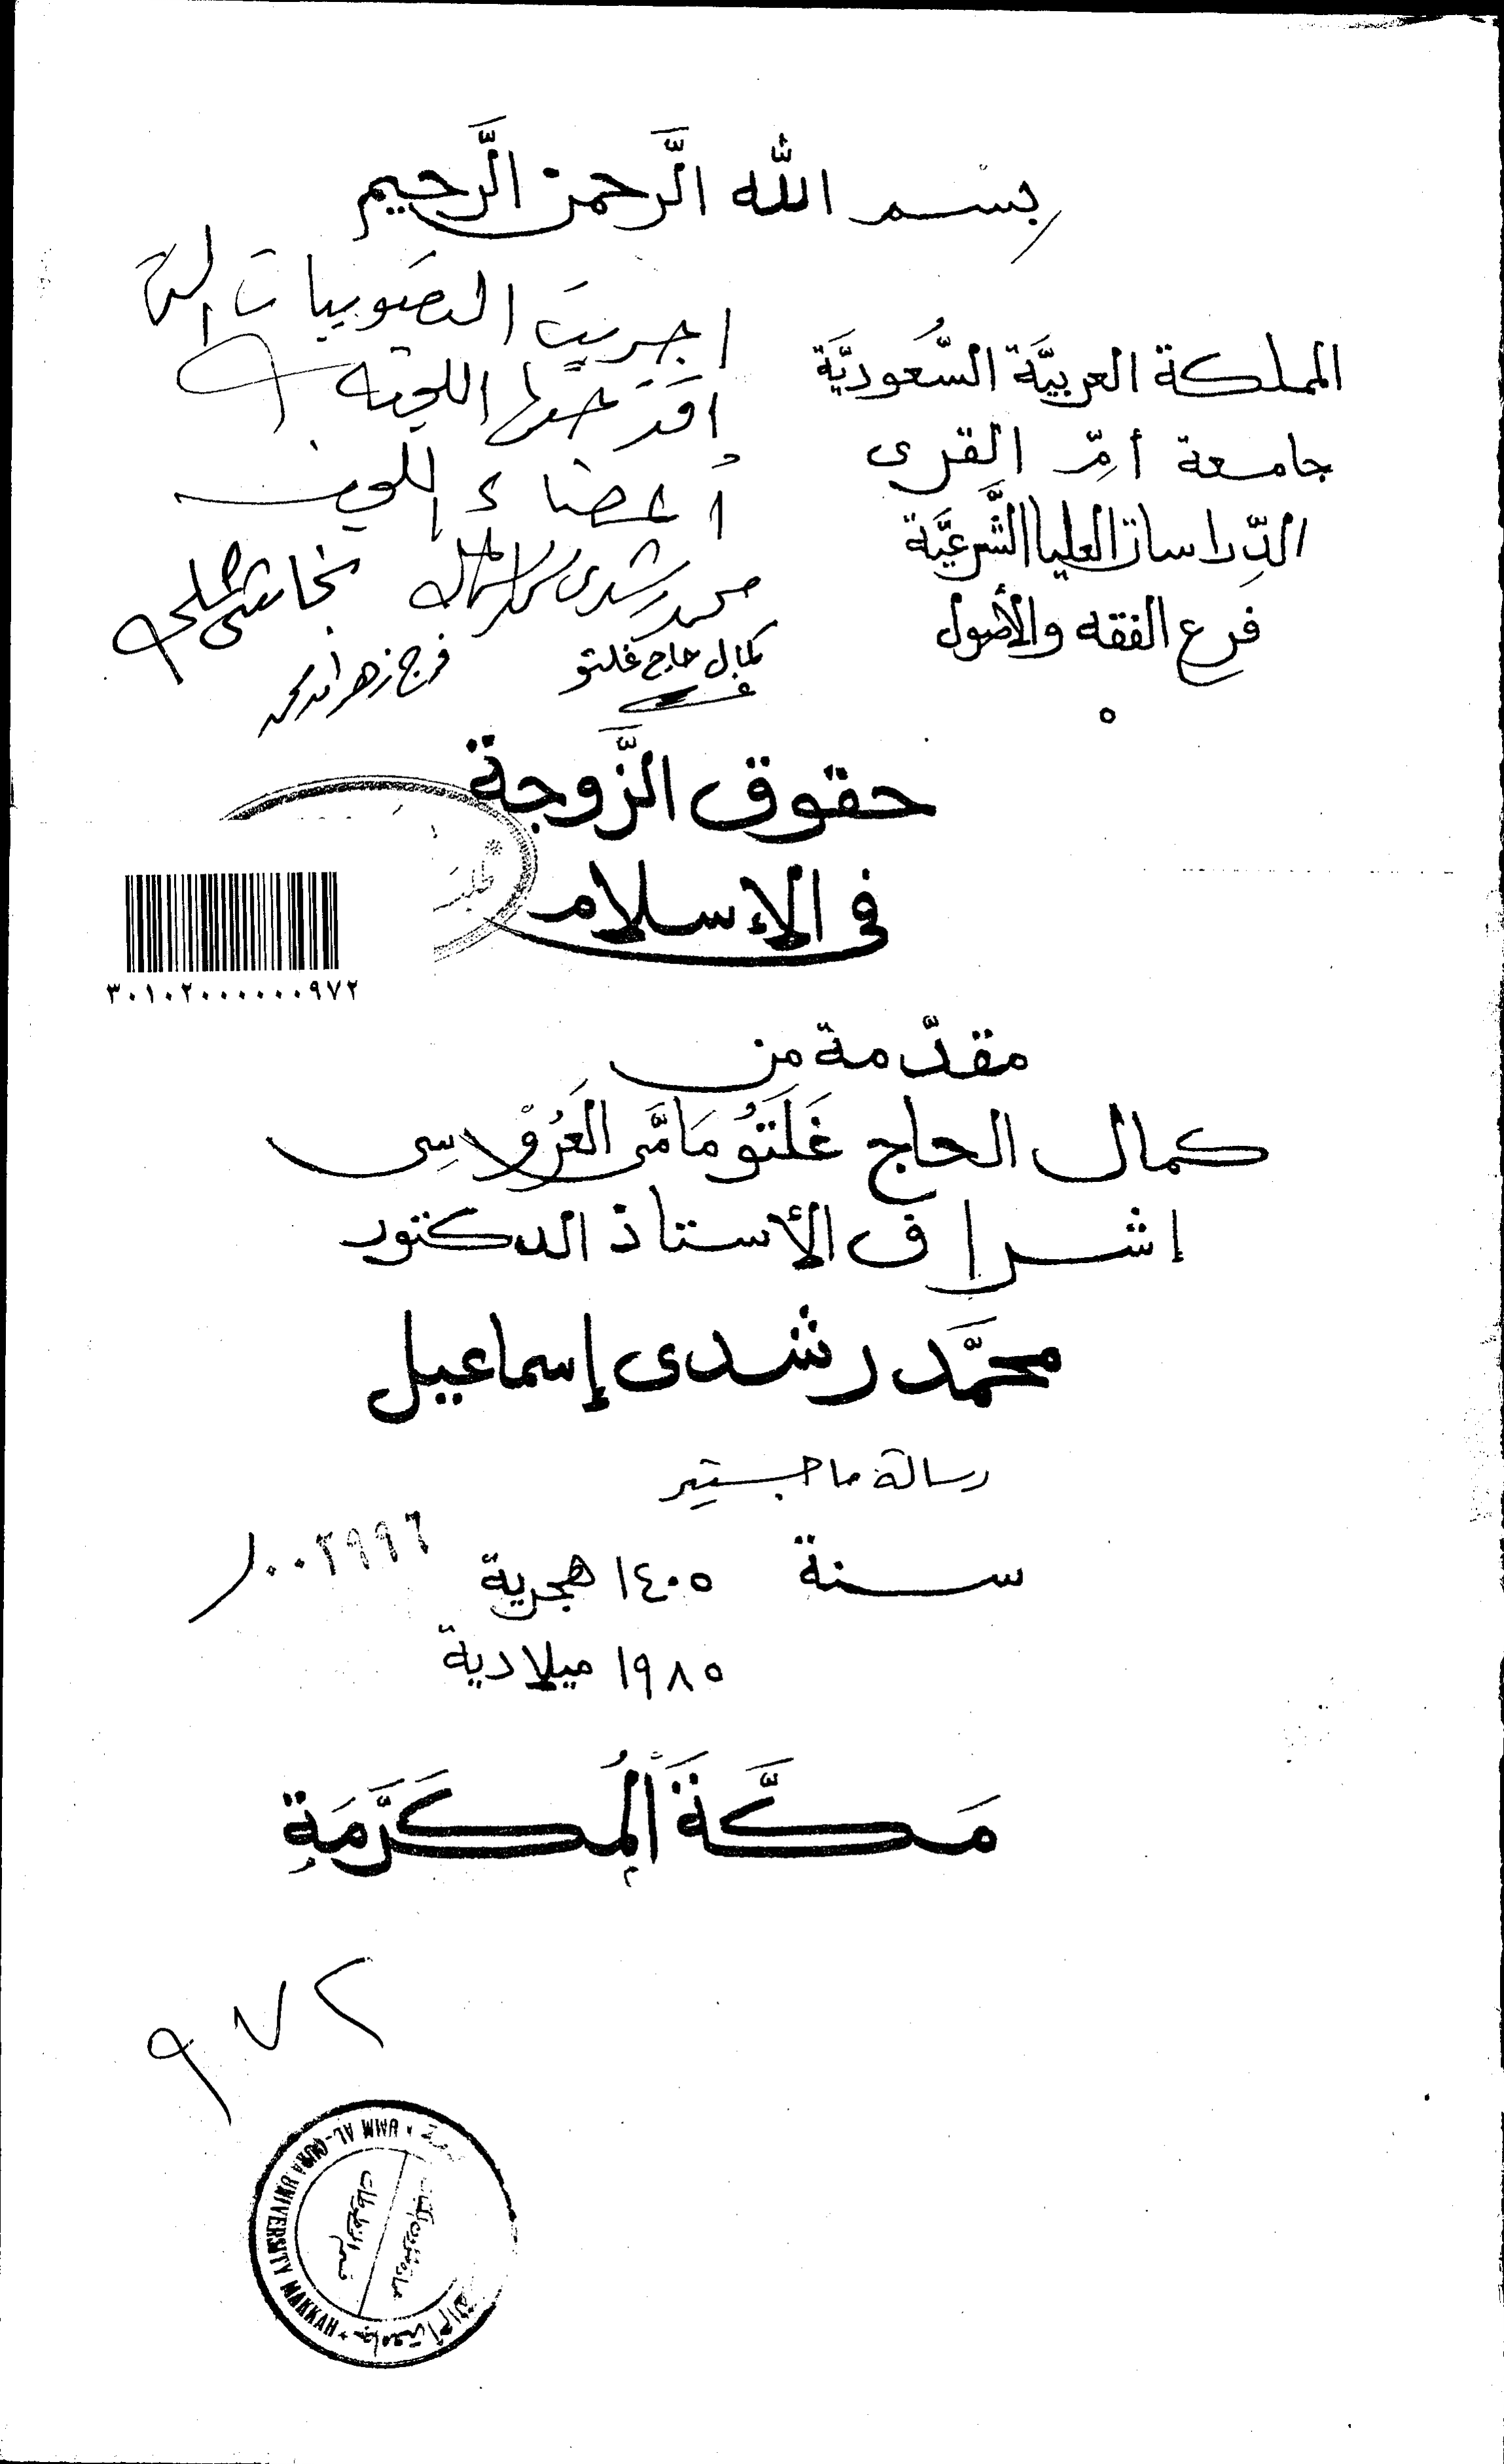 بسم الله الرَّحمن الرَّحيم
المملكة العربيَّة السُّعوديَّة
جامعة أمّ القرى
الدِّراسات العليا الشَّرعيَّة
فرع الفقه والأصول
اجريت التصويبات التى
اقترحتها اللجنة
أعضاء اللجنة
محمد رشدى
كمال حاج غلتو
حقوق الزَّوجة
فى الإسلام
٣٠١٠٢٠٠٠٠٠٠٩٧٢
مقدّمة من
كمال الحاج غَلَتُو مَامَّى العَرُوسِى
إشراف الأستاذ الدكتور
محمَّد رشدى إسماعيل
رسالة ماجستير
٠٠٢٩٩٦
سنة ١٤٠٥ هجرية
١٩٨٥ ميلادية
مَكَّةَ المُكَرَّمَةِ
٩٧٢
UMM AL-QURA UNIVERSITY MAKKAH
جامعة أم القرى
قسم المخطوطات